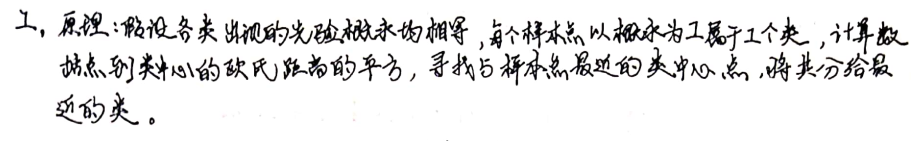 1, 原理:假设各类出现的先验概率均相等,每个样本点以概率为1属于1个类,计算数
据点到类中心的欧氏距离的平方,寻找与样本点最近的类中心点,将其分给最
近的类。